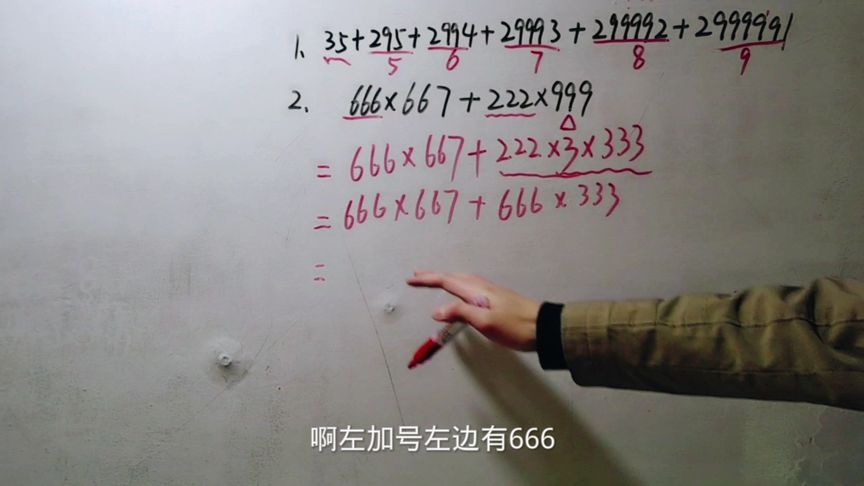 1、35+295+2994+29993+299992+2999991
5 6 7 8 9
2、 666×667+222×999
=666×667+222×3×333
=666×667+666×333
=
啊左加号左边有666